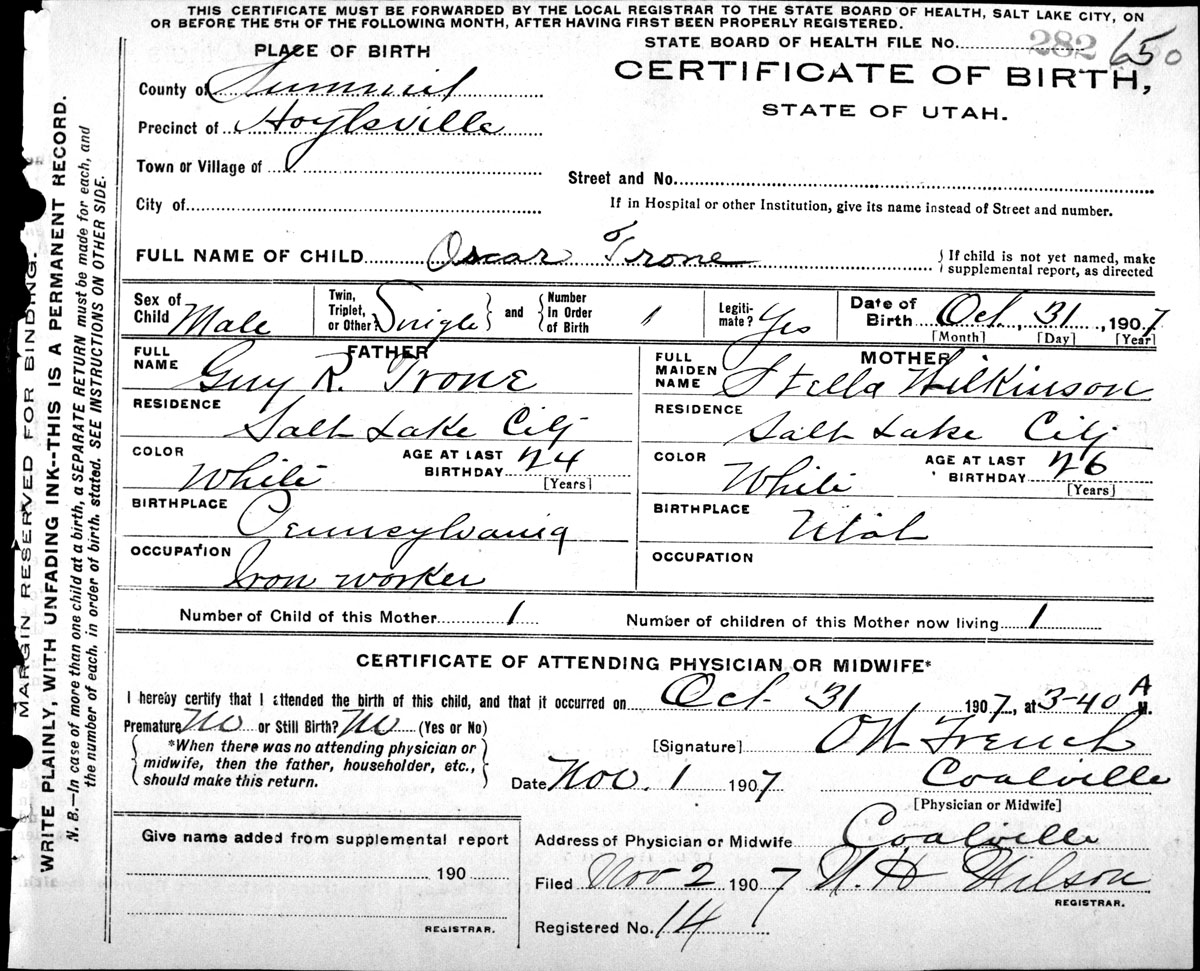 THIS CERTIFICATE MUST BE FORWARDED BY THE LOCAL REGISTRAR TO THE STATE BOARD OF HEALTH, SALT LAKE CITY, ON
OR BEFORE THE 5TH OF THE FOLLOWING MONTH, AFTER HAVING FIRST BEEN PROPERLY REGISTERED.
PLACE OF BIRTH
STATE BOARD OF HEALTH FILE NO. 282 650
CERTIFICATE OF BIRTH,
STATE OF UTAH.
County of Summit
Precinct of Hoytsville
Town or Village of
Street and No.
City of
If in Hospital or other Institution, give its name instead of Street and number.
FULL NAME OF CHILD Oscar Trone
{If child is not yet named, make
supplemental report, as directed
Sex of Child Male
Twin, Triplet, or Other? Single } and { Number In Order of Birth 1
Legitimate? Yes
Date of Birth Oct. 31, 1907
[Month] [Day] [Year]
FATHER
FULL NAME Guy R. Trone
RESIDENCE Salt Lake City
COLOR White
AGE AT LAST BIRTHDAY 24
[Years]
BIRTHPLACE Pennsylvania
OCCUPATION Iron worker
MOTHER
FULL MAIDEN NAME Stella Wilkinson
RESIDENCE Salt Lake City
COLOR White
AGE AT LAST BIRTHDAY 26
[Years]
BIRTHPLACE Utah
OCCUPATION
Number of Child of this Mother 1
Number of children of this Mother now living 1
CERTIFICATE OF ATTENDING PHYSICIAN OR MIDWIFE*
I hereby certify that I attended the birth of this child, and that it occurred on Oct. 31 1907, at 3-40 A M.
Premature No or Still Birth? No (Yes or No)
{ *When there was no attending physician or
midwife, then the father, householder, etc.,
should make this return. }
[Signature] O W French
Date Nov. 1 1907
Coalville
[Physician or Midwife]
Give name added from supplemental report
190
REGISTRAR.
Address of Physician or Midwife Coalville
Filed Nov 2 1907 N. H Wilson
REGISTRAR.
Registered No. 14
MARGIN RESERVED FOR BINDING.
WRITE PLAINLY, WITH UNFADING INK--THIS IS A PERMANENT RECORD.
N. B.—In case of more than one child at a birth, a SEPARATE RETURN must be made for each, and
the number of each, in order of birth, stated. SEE INSTRUCTIONS ON OTHER SIDE.